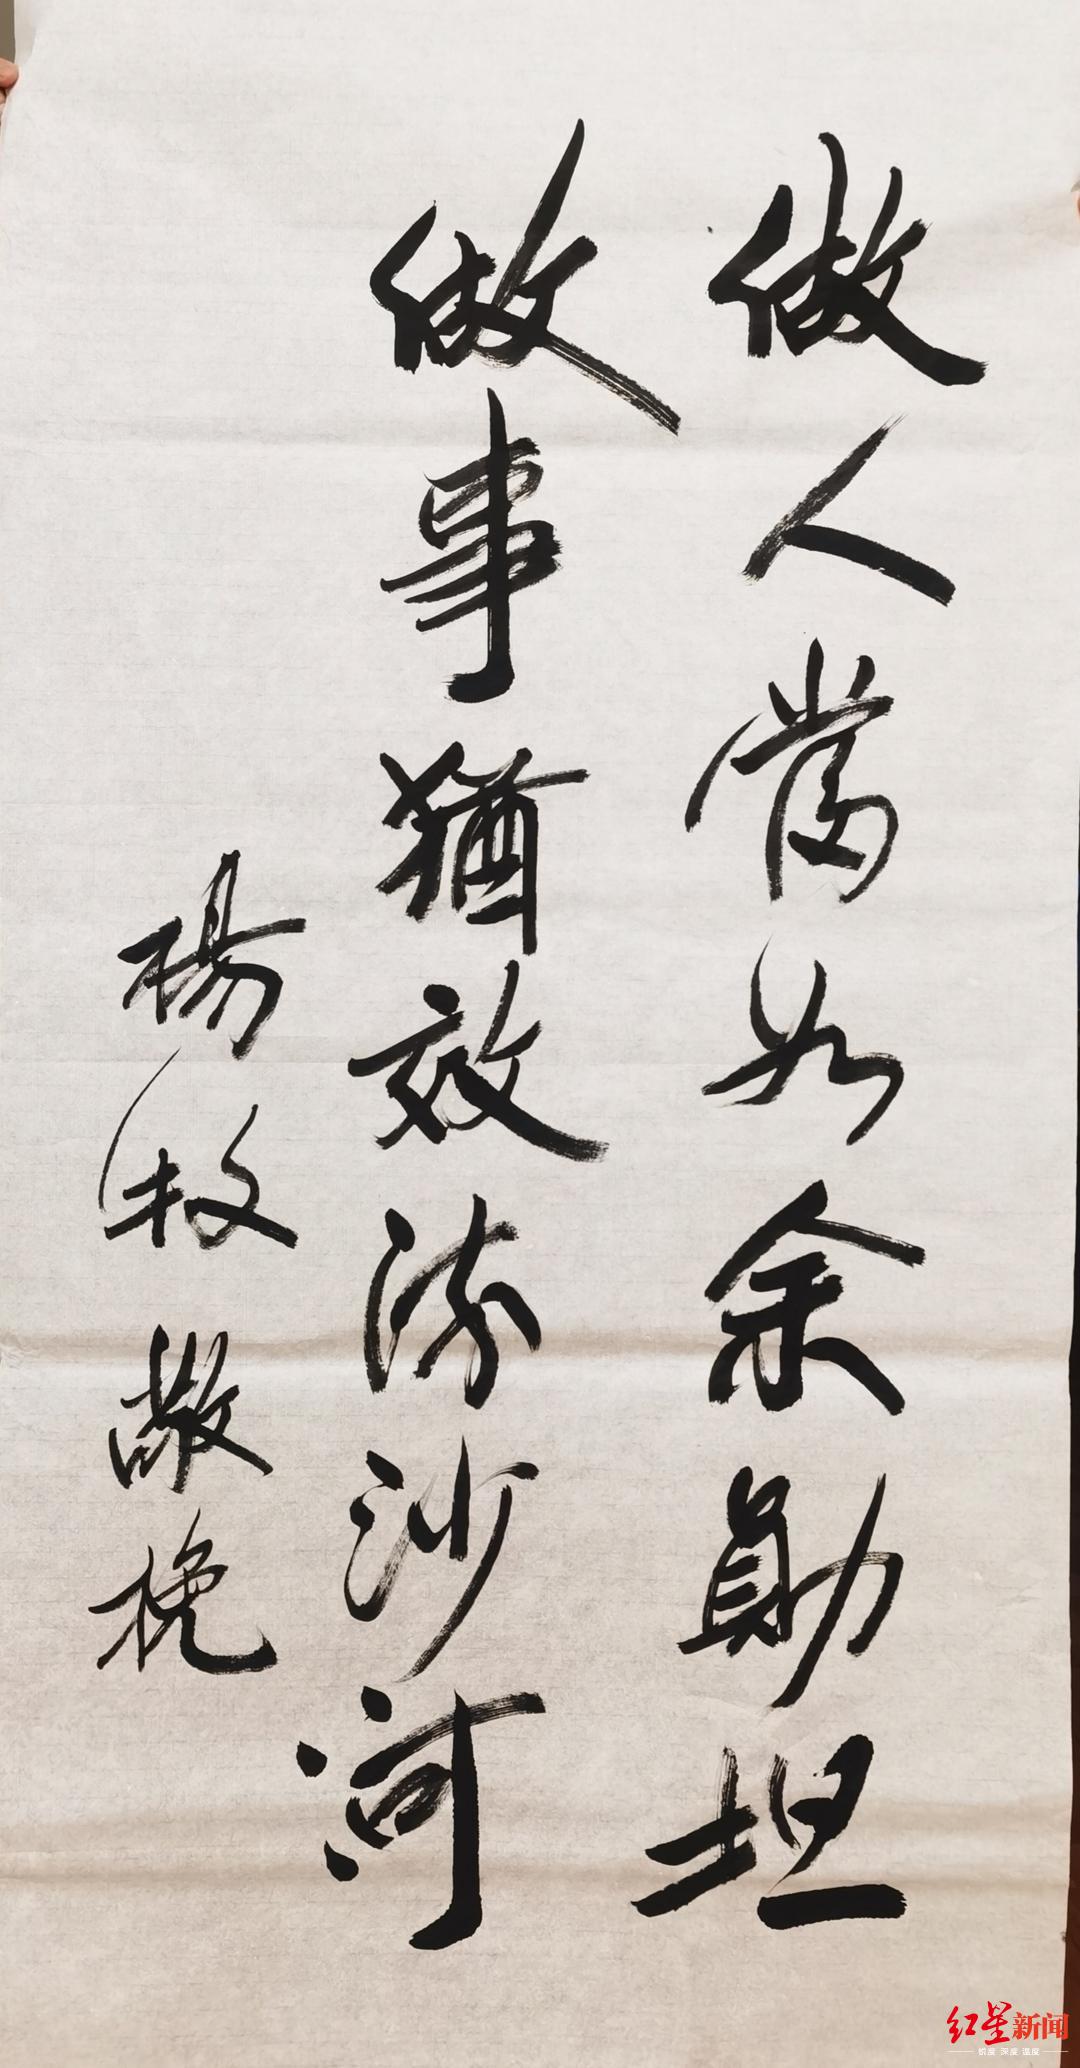 做人當如余勛坦
做事猶效流沙河
楊牧敬挽
红星新闻
锐度 深度 温度